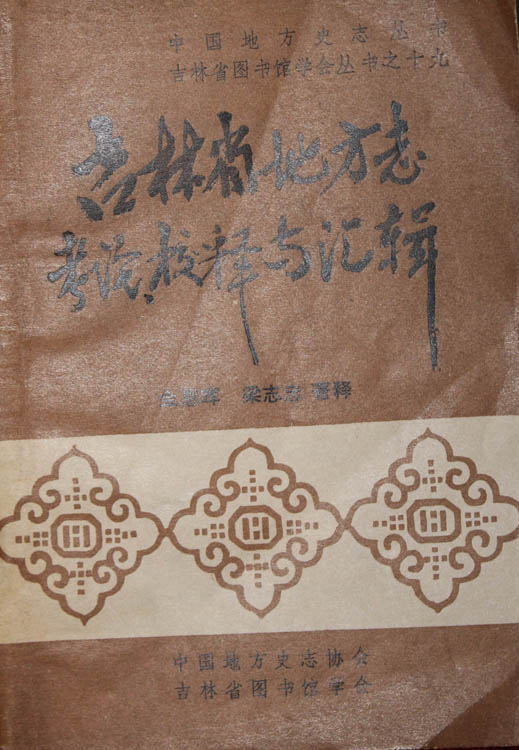 中国地方史志丛书
吉林省图书馆学会丛书之十九
吉林省地方志
考论、校释与汇辑
金恩晖 梁志忠 著释
中国地方史志协会
吉林省图书馆学会